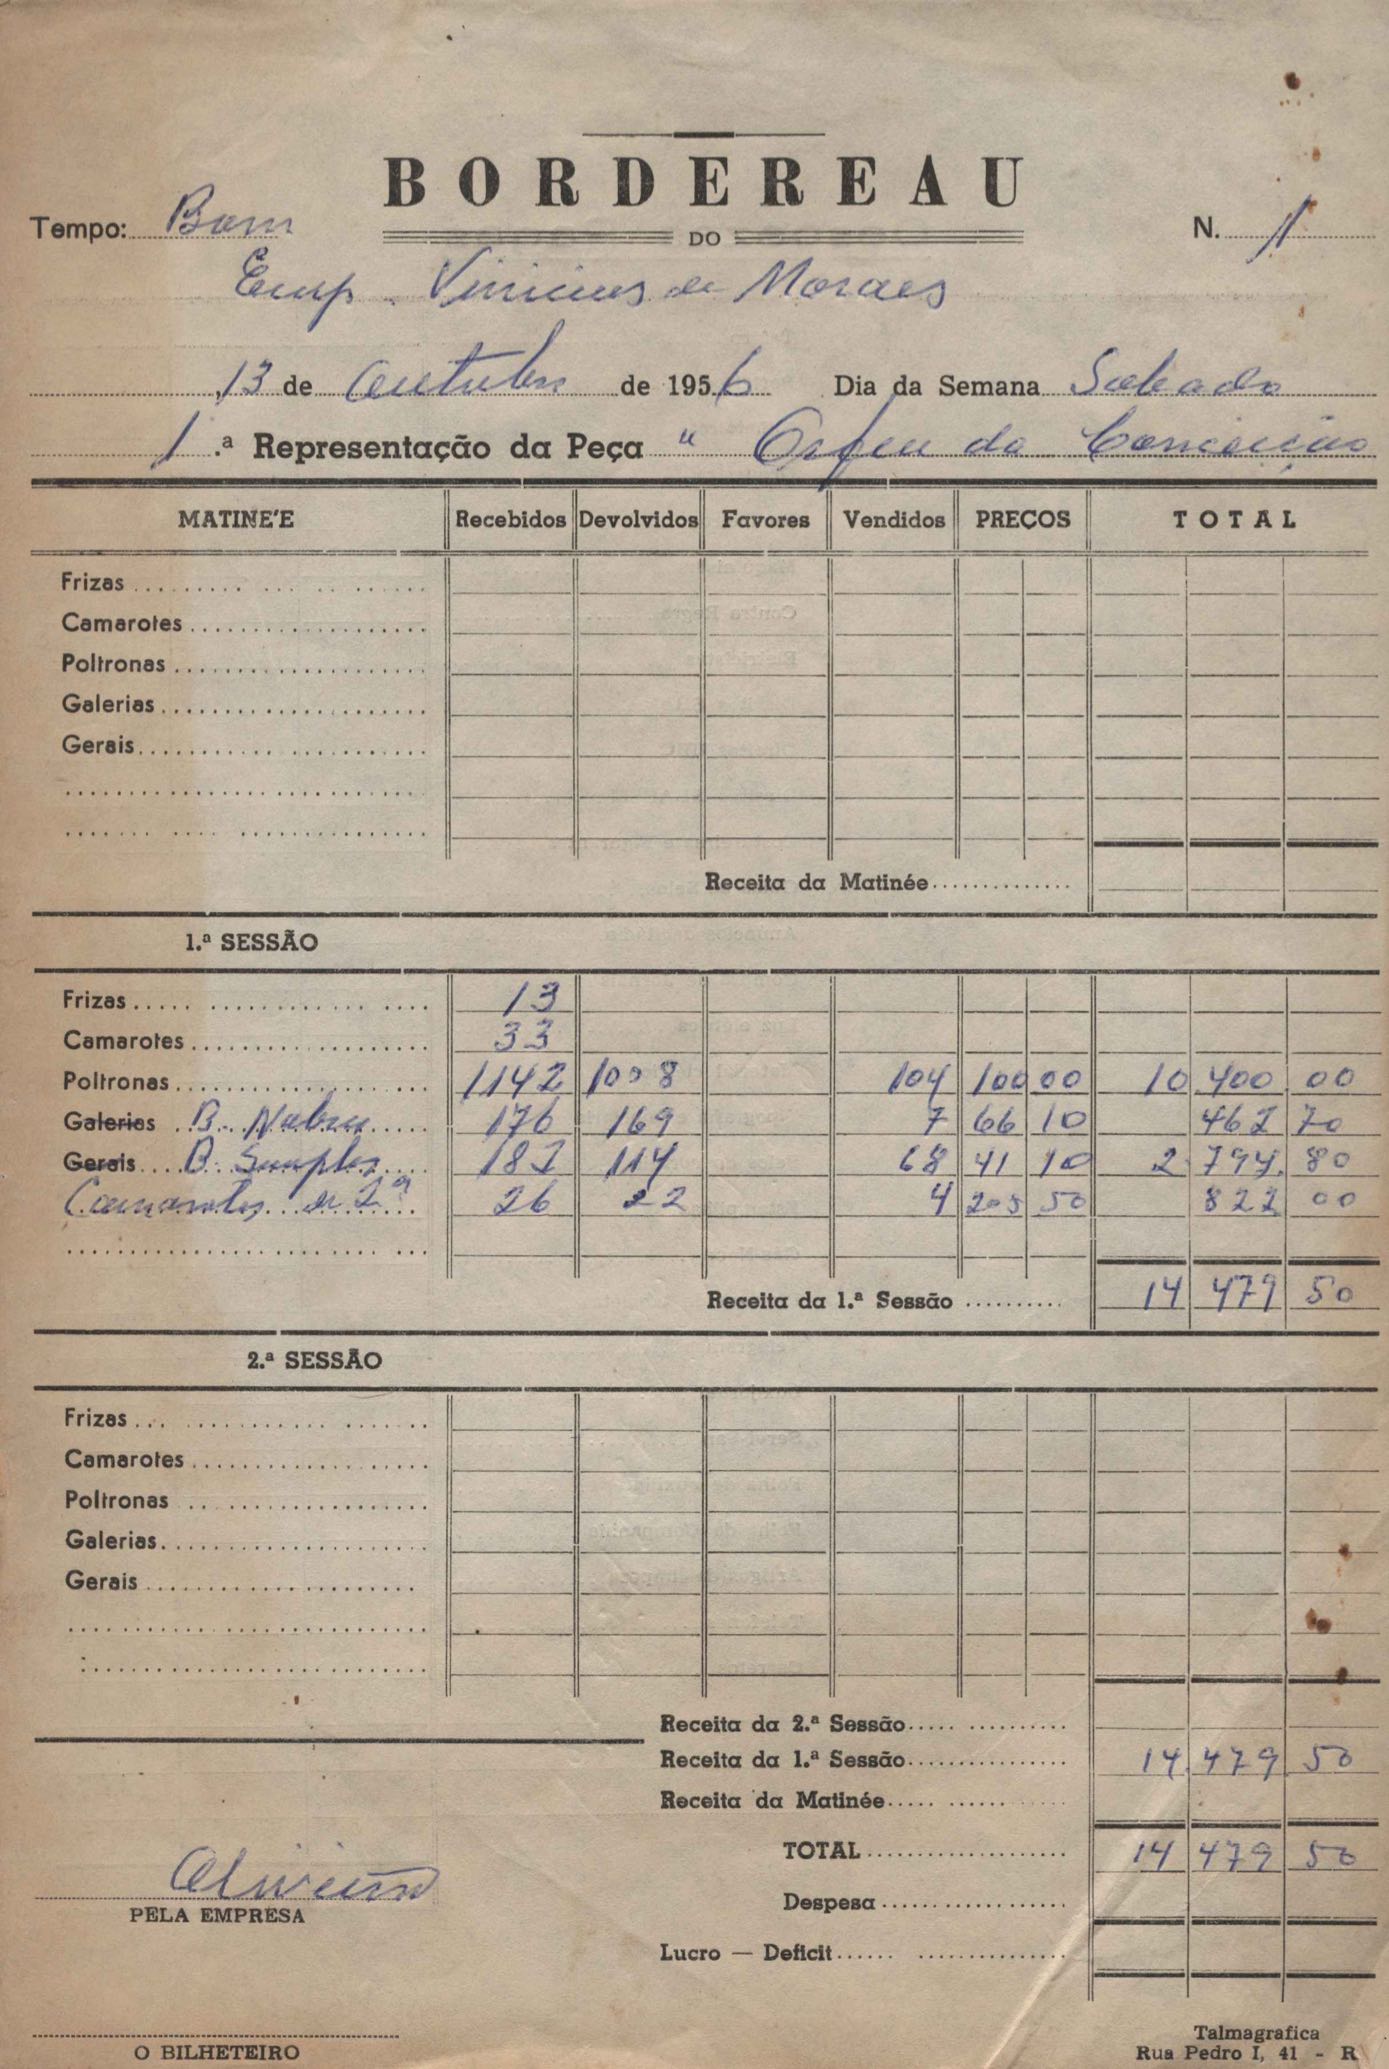 BORDEREAU
Tempo: Bom
DO
N. 1
Emp. Vinicius de Moraes
, 13 de Outubro de 1956 Dia da Semana Sabado
1.ª Representação da Peça " Orfeu da Conceição
MATINE'E Recebidos Devolvidos Favores Vendidos PREÇOS TOTAL
Frizas
Camarotes
Poltronas
Galerias
Gerais
Receita da Matinée
1.ª SESSÃO
Frizas 13
Camarotes 33
Poltronas 1142 1008 104 100 00 10 400 00
Galerias B. Nobres 176 169 7 66 10 462 70
Gerais B. Simples 182 114 68 41 10 2 794. 80
Camarotes de 2ª 26 22 4 205 50 822 00
Receita da 1.ª Sessão 14 479 50
2.ª SESSÃO
Frizas
Camarotes
Poltronas
Galerias
Gerais
Receita da 2.ª Sessão
Receita da 1.ª Sessão 14.479 50
Receita da Matinée
TOTAL 14 479 50
Oliveira
PELA EMPRESA
Despesa
Lucro — Deficit
O BILHETEIRO
Talmagrafica
Rua Pedro I, 41 - R